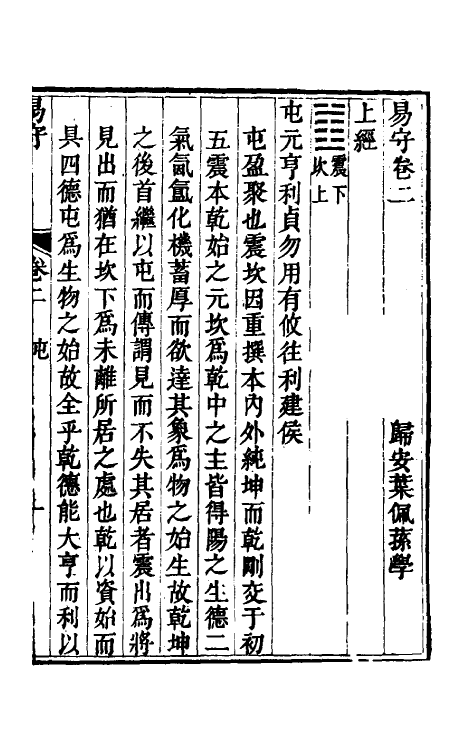 易守卷二
歸安葉佩蓀學
上經
震下
坎上
屯元亨利貞勿用有攸往利建侯
屯盈聚也震坎因重撰本內外純坤而乾剛交于初
五震本乾始之元坎爲乾中之主皆得陽之生德二
氣氤氳化機蓄厚而欲達其象爲物之始生故乾坤
之後首繼以屯而傳謂見而不失其居者震出爲將
見出而猶在坎下爲未離所居之處也乾以資始而
具四德屯爲生物之始故全乎乾德能大亨而利以
易守
卷二
屯